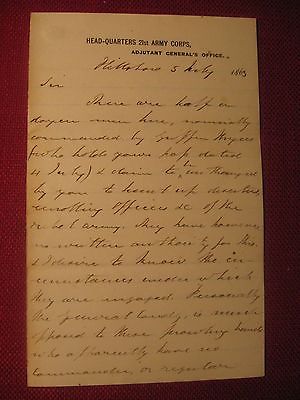 HEAD-QUARTERS 21st ARMY CORPS,
ADJUTANT GENERAL'S OFFICE.
Hillsboro 5 July 1863
Sir
There are half a
dozen men here, nominally
commanded by
(who holds yours pass dated
4 July) & claim to be authorized
by you to hunt up deserters,
enrolling officers &c of the
rebel army. They have however
no written authority for this.
& I desire to know the cir-
cumstances under which
they are engaged. Personally
the General Comdg, is much
opposed to these prowling bands
who apparently have no
commander, or regular